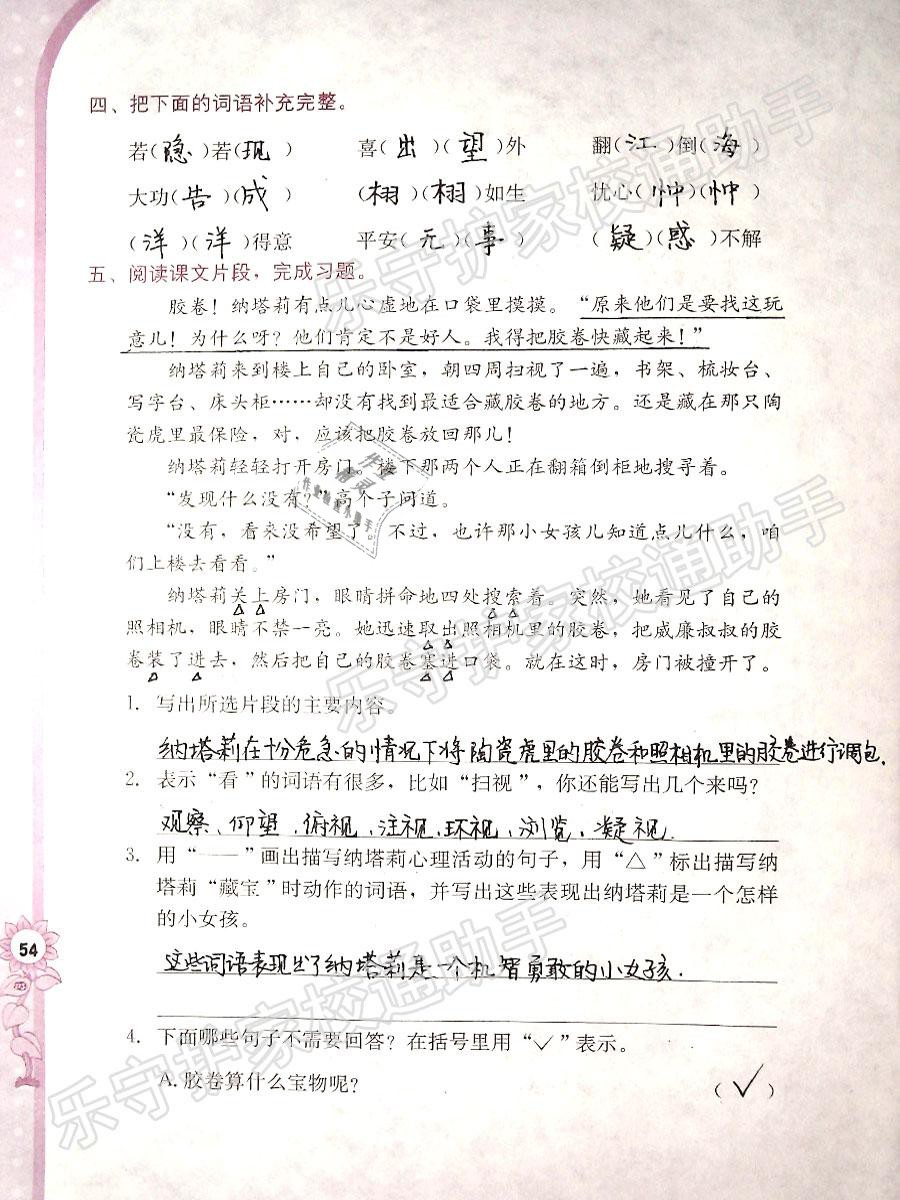 四、把下面的词语补充完整。
若(隐)若(现) 喜(出)(望)外 翻(江)倒(海)
大功(告)(成) (栩)(栩)如生 忧心(忡)(忡)
(洋)(洋)得意 平安(无)(事) (疑)(惑)不解
五、阅读课文片段，完成习题。
胶卷！纳塔莉有点儿心虚地在口袋里摸摸。“原来他们是要找这玩
意儿！为什么呀？他们肯定不是好人。我得把胶卷快藏起来！”
纳塔莉来到楼上自己的卧室，朝四周扫视了一遍，书架、梳妆台、
写字台、床头柜……却没有找到最适合藏胶卷的地方。还是藏在那只陶
瓷虎里最保险，对，应该把胶卷放回那儿！
纳塔莉轻轻打开房门。楼下那两个人正在翻箱倒柜地搜寻着。
“发现什么没有？”高个子问道。
“没有，看来没希望了。不过，也许那小女孩儿知道点儿什么，咱
们上楼去看看。”
纳塔莉关上房门，眼睛拼命地四处搜索着。突然，她看见了自己的
照相机，眼睛不禁一亮。她迅速取出照相机里的胶卷，把威廉叔叔的胶
卷装了进去，然后把自己的胶卷塞进口袋。就在这时，房门被撞开了。
1. 写出所选片段的主要内容。
纳塔莉在十分危急的情况下将陶瓷虎里的胶卷和照相机里的胶卷进行调包.
2. 表示“看”的词语有很多，比如“扫视”，你还能写出几个来吗？
观察、仰望、俯视、注视、环视、浏览、凝视.
3. 用“——”画出描写纳塔莉心理活动的句子，用“△”标出描写纳
塔莉“藏宝”时动作的词语，并写出这些表现出纳塔莉是一个怎样
的小女孩。
这些词语表现出了纳塔莉是一个机智勇敢的小女孩.
4. 下面哪些句子不需要回答？在括号里用“✓”表示。
A. 胶卷算什么宝物呢？ (✓)
54
乐守护家校通助手
乐守护家校通助手
乐守护家校通助手
作业精灵
作业帮家小助手